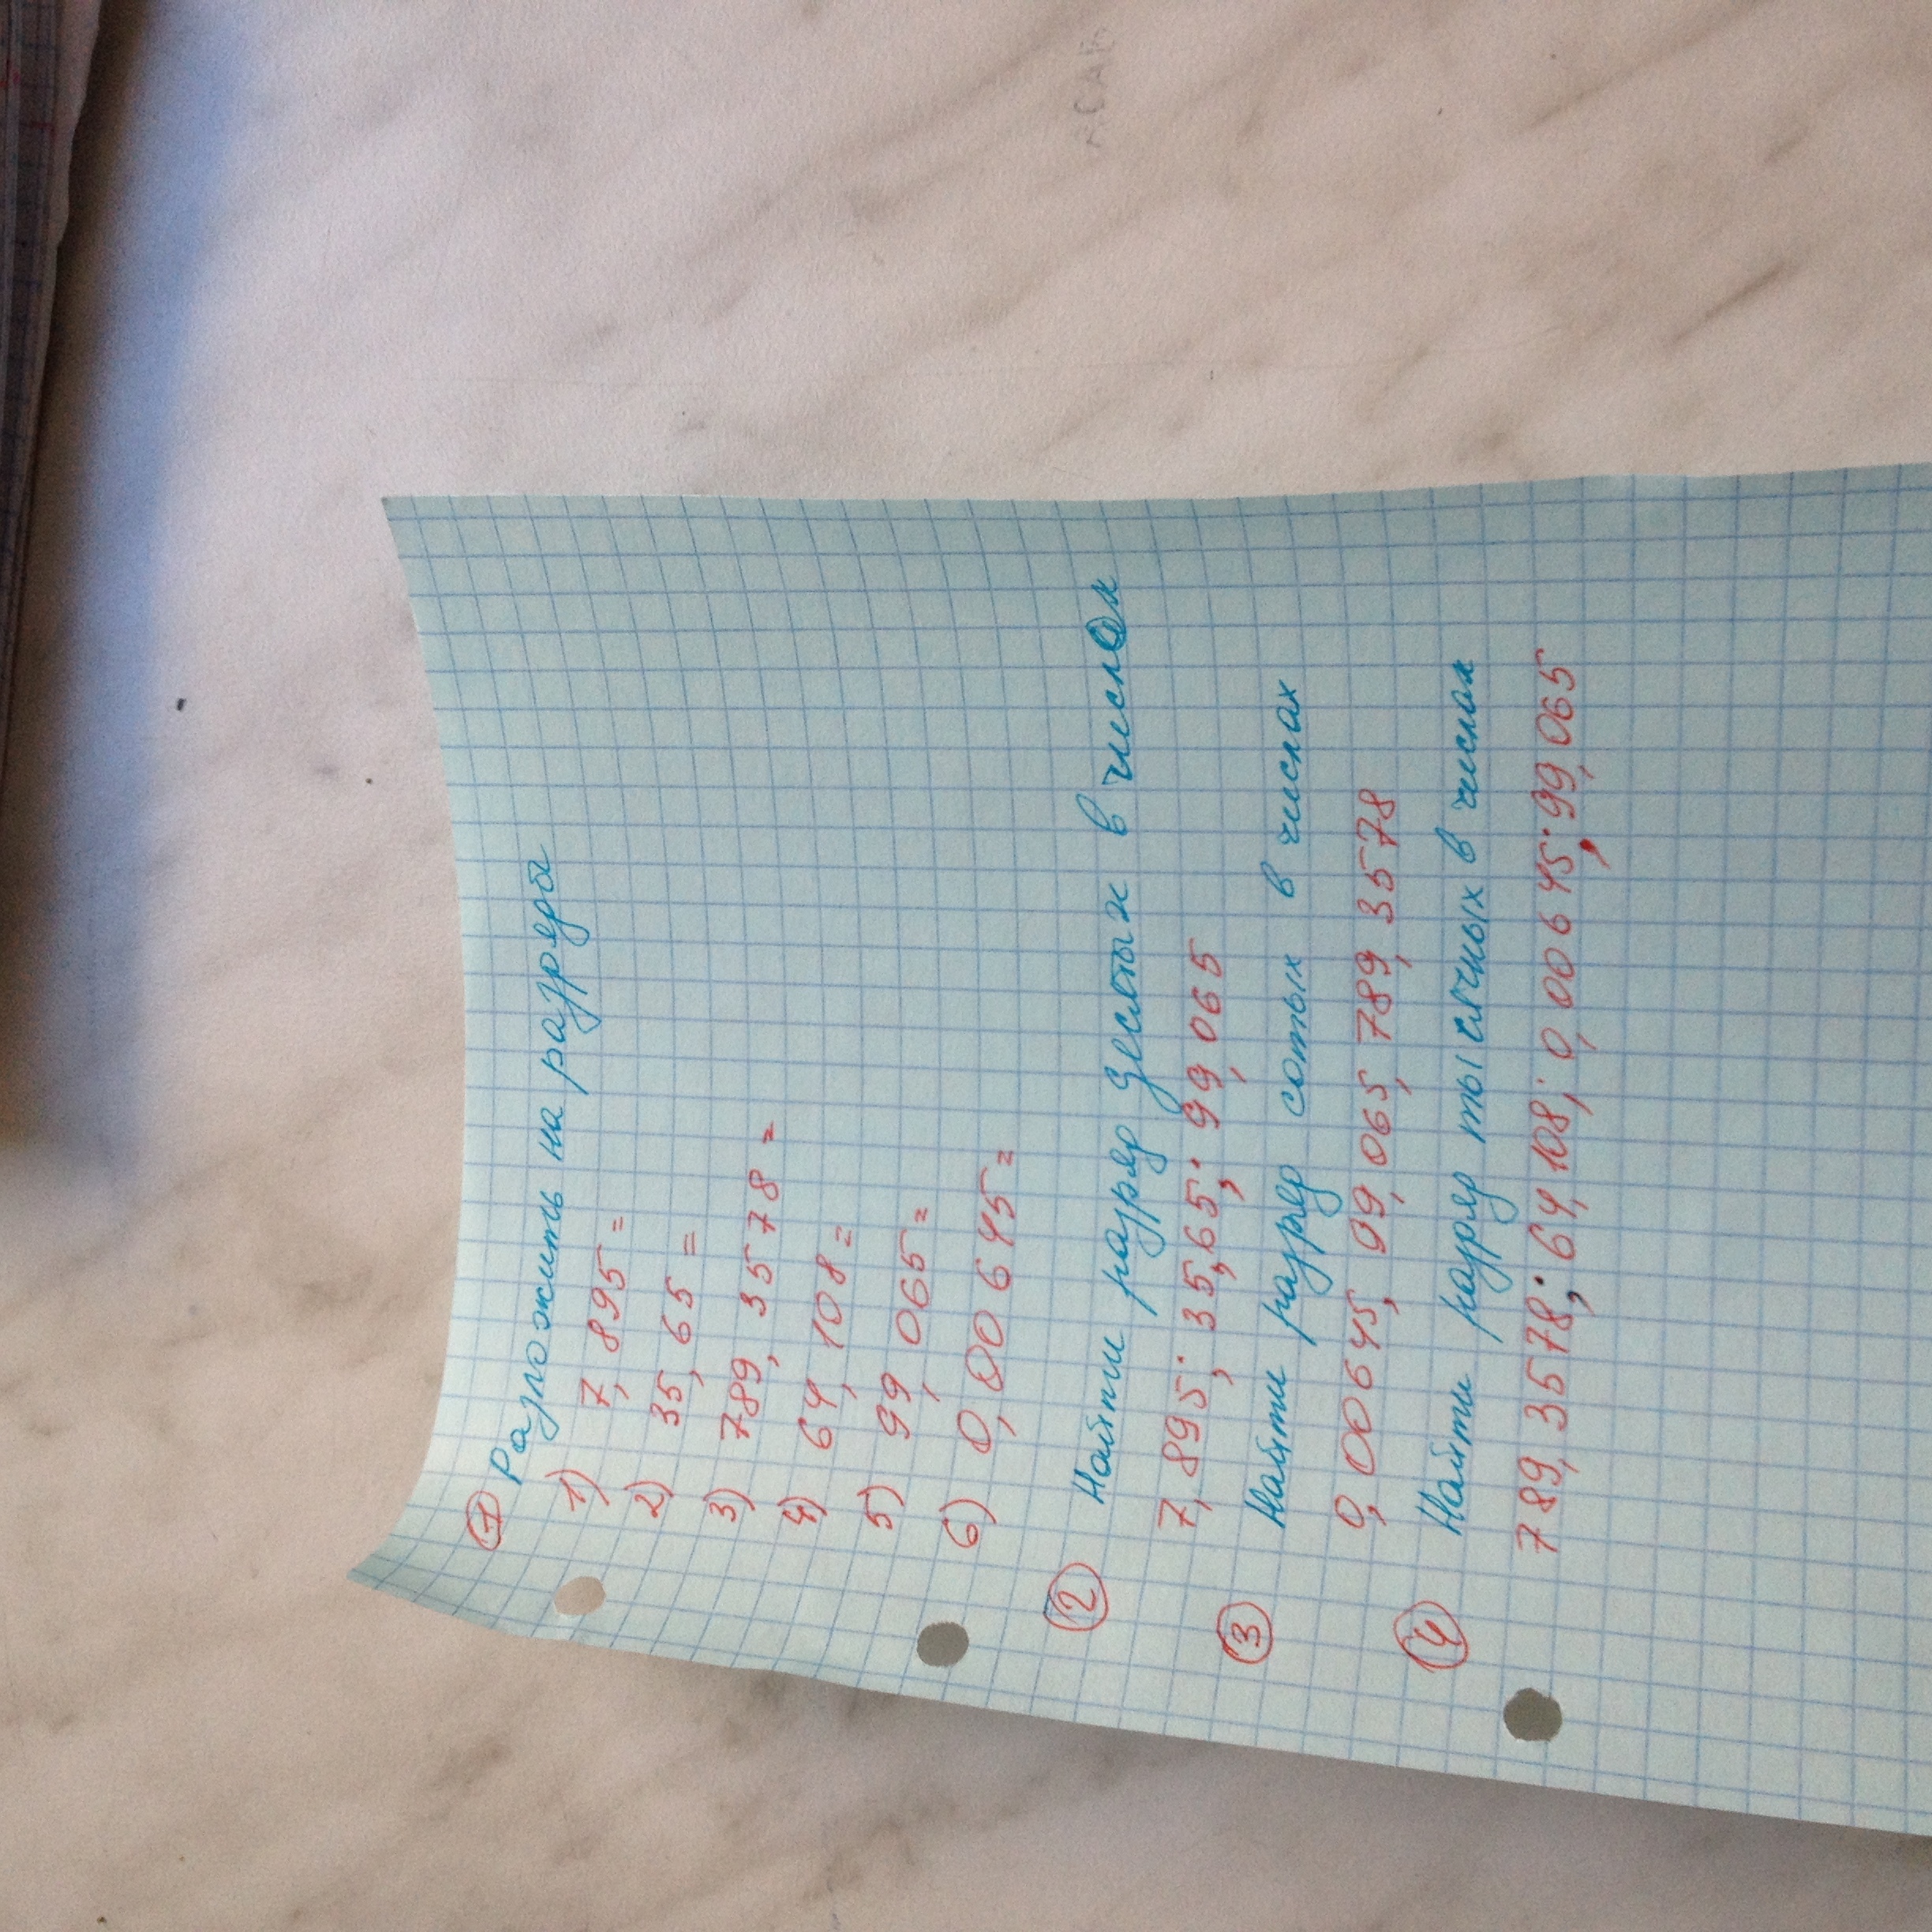 ① Разложить на разряды
1) 7,895 =
2) 35,65 =
3) 789,3578 =
4) 64,108 =
5) 99,065 =
6) 0,00645 =
② Найти разряд десятых в числах
7,895; 35,65; 99,065
③ Найти разряд сотых в числах
0,00645, 99,065, 789,3578
④ Найти разряд тысячных в числах
789,3578; 64,108; 0,00645; 99,065